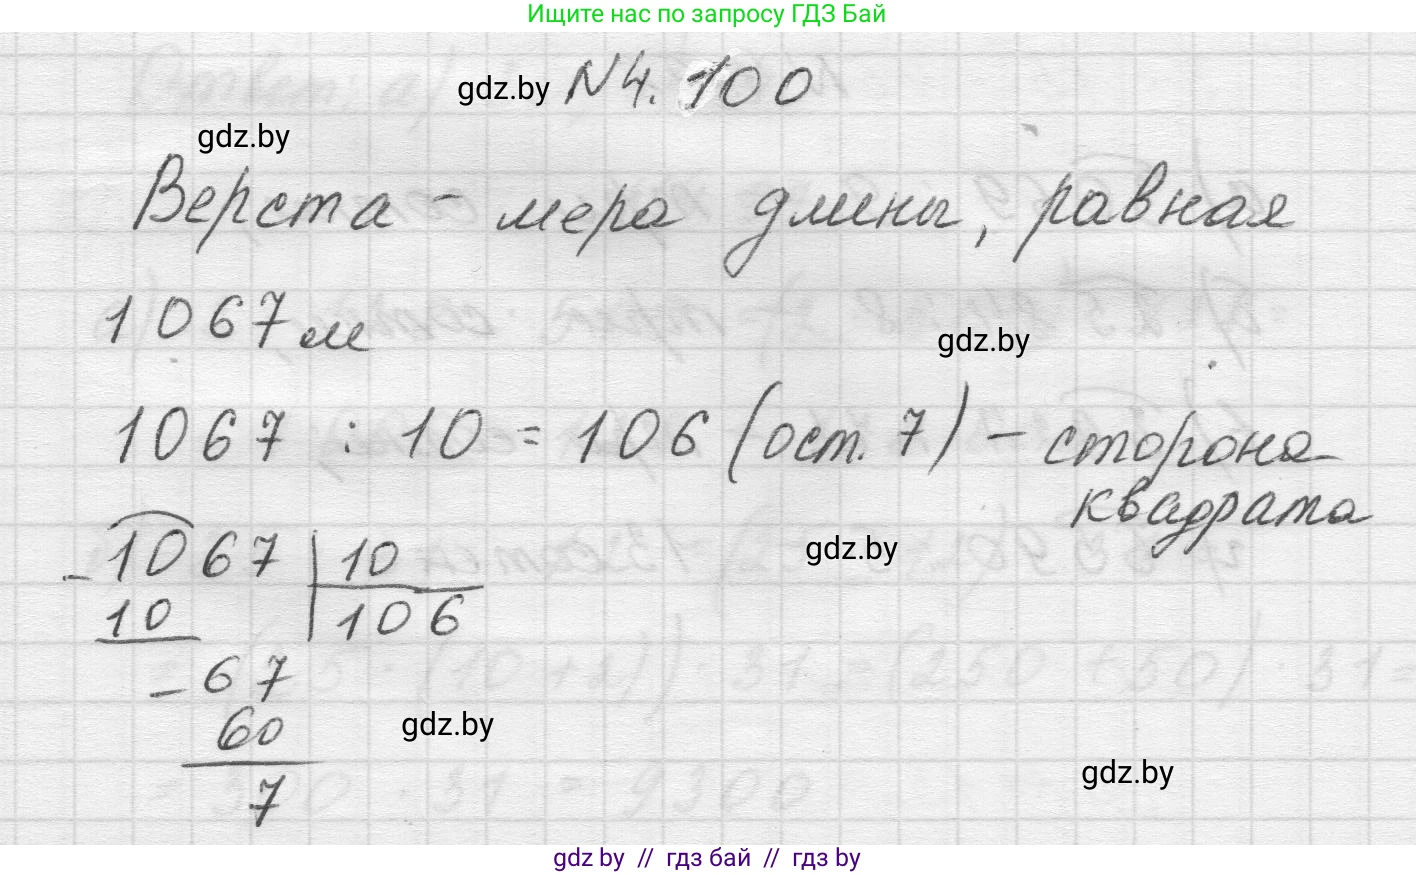 Ищите нас по запросу ГДЗ Бай
gdz.by N4.100
gdz.by
Верста - мера длины, равная
1067 м
gdz.by
1067 : 10 = 106 (ост. 7) - сторона
квадрата
- 1067 | 10
gdz.by
10 106
- 67
60
gdz.by
7
gdz.by
gdz by // гдз бай // гдз by